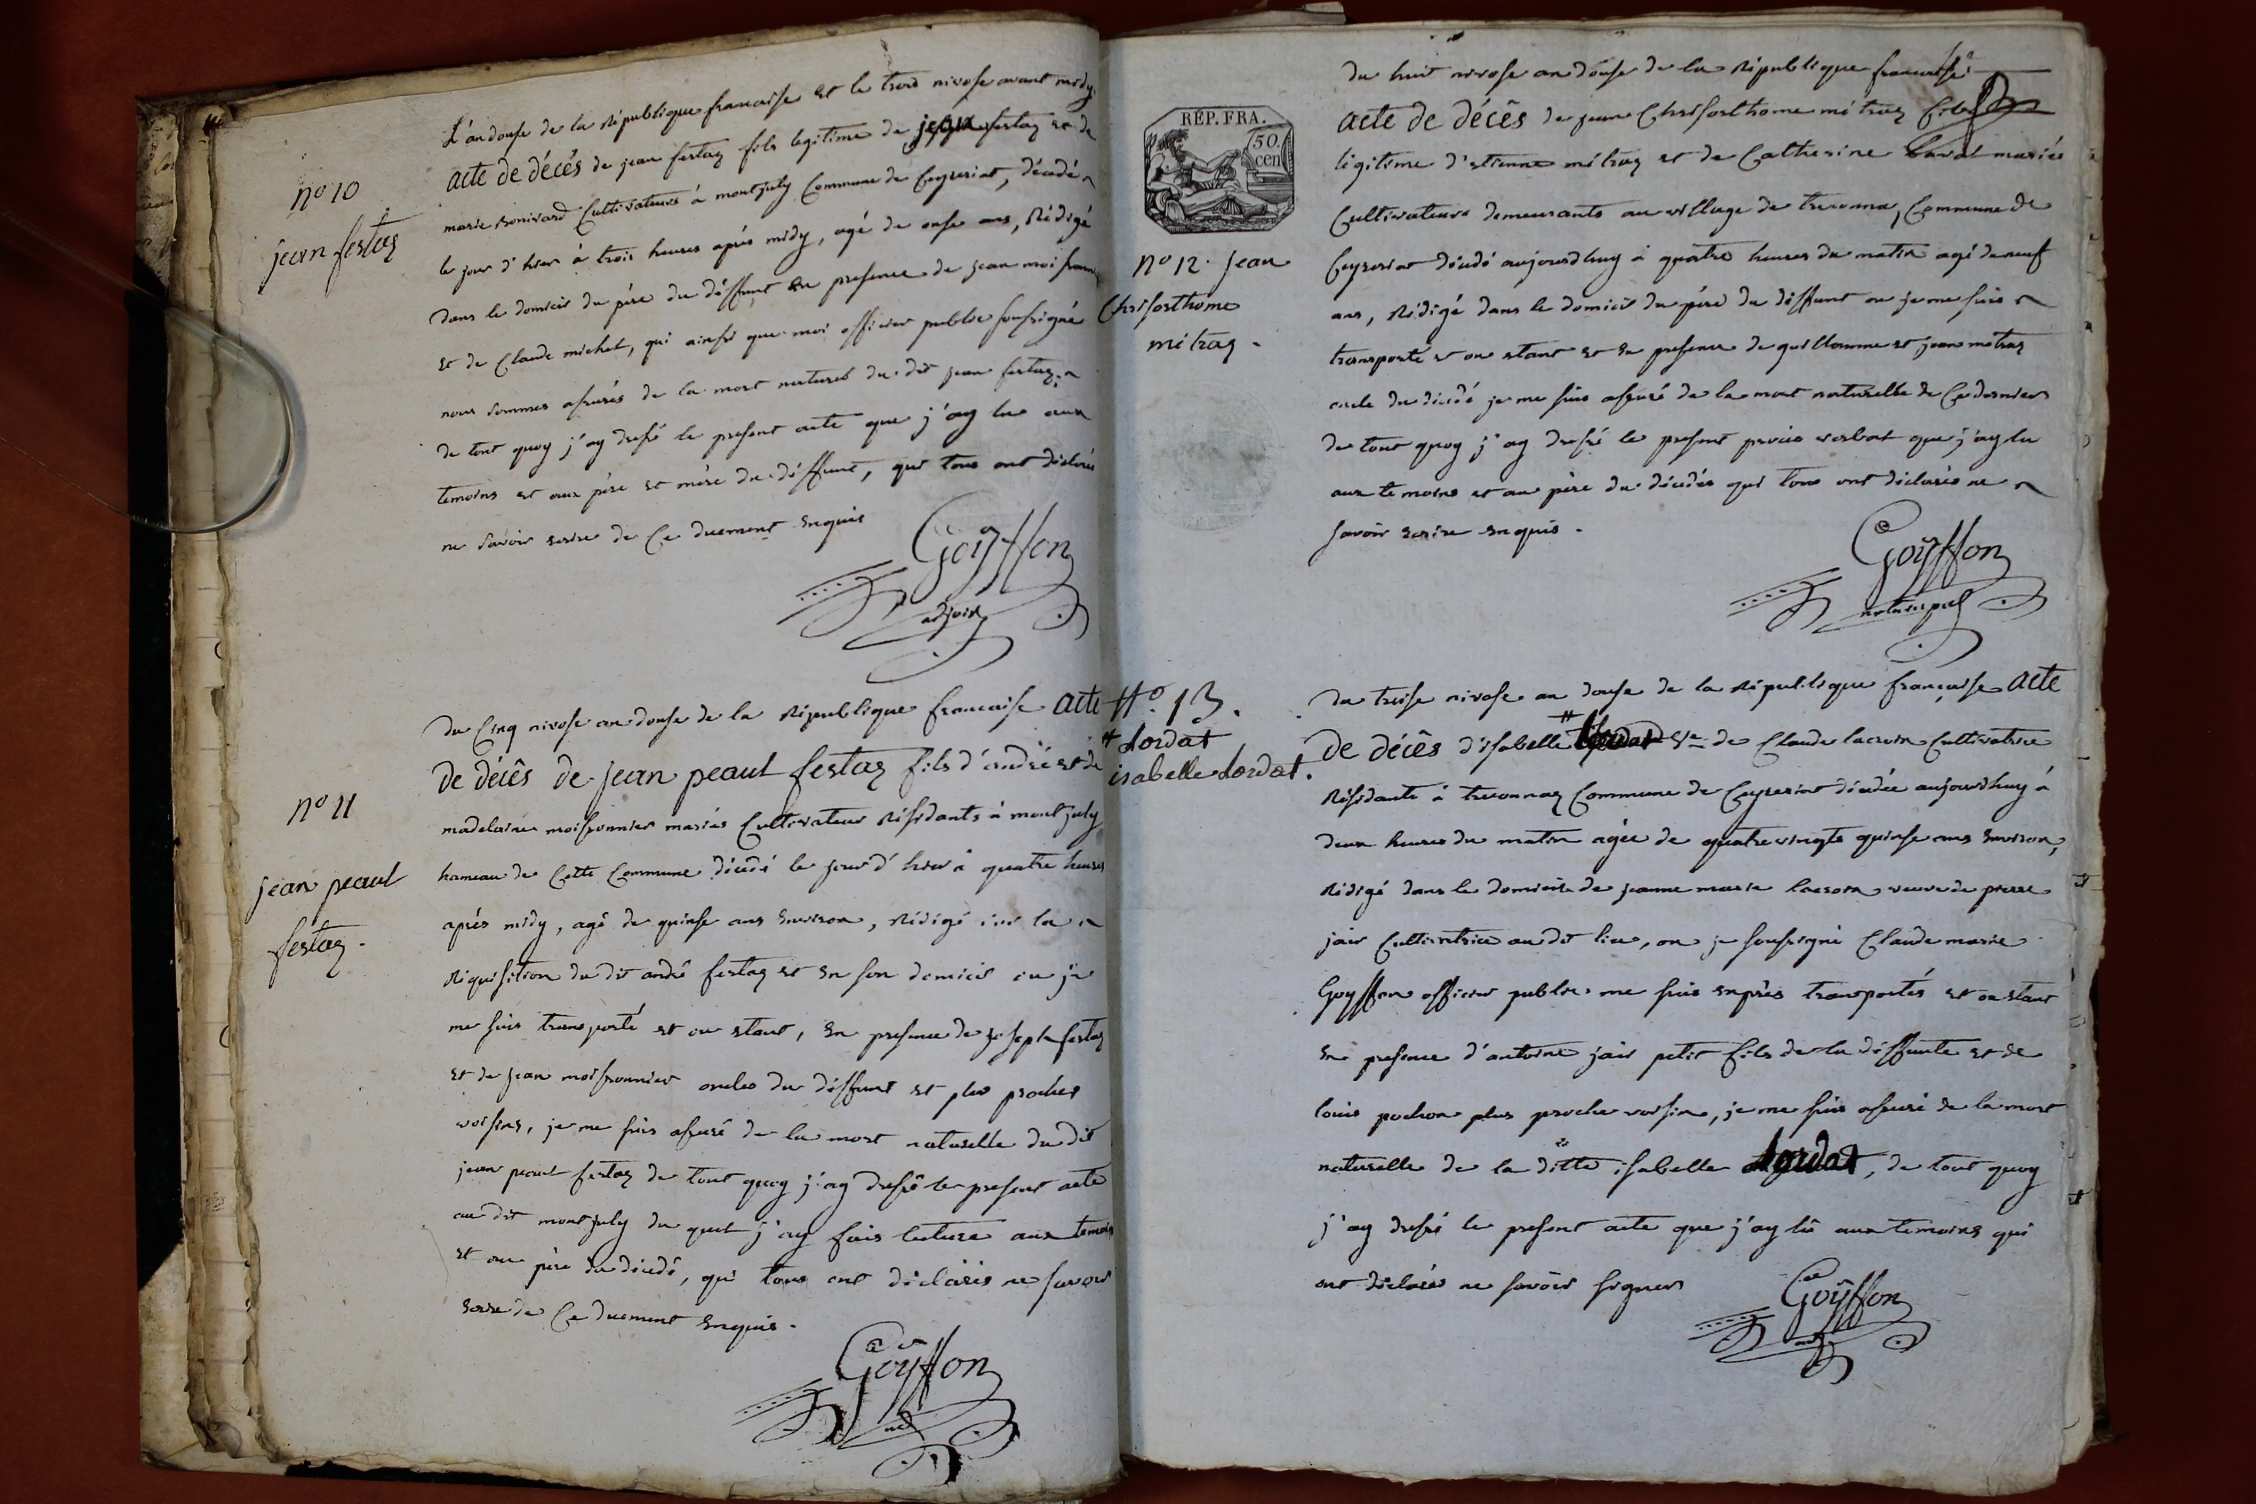 L'an douse de la République francaise et le trois nivose avant midy
acte de décés de jean festaz fils legitime de jean festaz et de
marie Bonivard Cultivateurs à montjuly Commune de Ceyzeriat, décédé
le jour d'hier à trois heures aprés midy, agé de onse ans, Rédigé
dans le domicile du pére du déffunt en presence de jean
et de Claude michel, qui ainsi que moi officier public soussigné
nous sommes assurés de la mort naturel du dit jean festaz
de tout quoy j'ay dressé le present acte que j'ay lu aux
temoins et aux pére et mére du déffunt, qui tous ont déclarés
ne savoir ecrire de Ce duement Enquis
Goÿffon
adjoint
n° 10
jean festaz
du Cinq nivose an douse de la République francaise acte
de décês de jean peaul festaz fils d'andré et de
madelaine moissonnier mariés Cultivateur Résidants à montjuly
hameau de Cette Commune décédé le jour d'hier à quatre heures
aprés midy, agé de quinse ans Environ, Rédigé sur la
Réquisition du dit andré festaz et en son domicile ou je
me suis transporté et ou etant, En presence de joseph festaz
et de jean moissonnier oncles du déffunt et plus proches
voisins, je me suis assuré de la mort naturelle du dit
jean peaul festaz de tout quoy j'ay dressé le present acte
au dit montjuly du quel j'ay fais lecture aux temoins
et au pére du décedé, qui tous ont déclarés ne savoir
ecrire de Ce duement Enquis.
Goÿffon
adj
n° 11
jean peaul
festaz.
RÉP. FRA.
50.
cen
du huit nivose an douse de la République francaise
acte de décês de jean Chrisosthome métraz fils
légitime d'etienne métraz et de Catherine mariés
Cultivateurs demeurants au village de treconnaz, Commune de
Ceyzeriat décédé aujourdhuy à quatre heures du matin agé de neuf
ans, Rédigé dans le domicile du pére du déffunt ou je me suis
transporté et ou etant et En presence de guillaume et jean métraz
oncle du décédé je me suis assuré de la mort naturelle de Ce dernier
de tout quoy j'ay dressé le present procés verbal que j'ay lu
aux temoins et au pére du décédés qui tous ont déclarés ne
savoir Ecrire Enquis.
Goÿffon
n° 12. jean
Chrisosthome
métraz.
du treise nivose an douse de la République française acte
de décês d'isabelle # ve de Claude lacroix Cultivatrice
Résidante à treconnaz Commune de Ceyzeriat décédée aujourdhuy à
deux heures du matin agée de quatre vingts quinse ans Environ,
Rédigé dans le domicile de jeanne marie lacroix veuve de pierre
jair Cultivatrice au dit lieu, ou je soussigné Claude marie
Goyffon officier public me suis exprés transportés et ou etant
En presence d'antoine jair petit fils de la déffunte et de
louis pochon plus proche voisin, je me suis assuré de la mort
naturelle de la ditte isabelle dordat, de tout quoy
j'ay dressé le present acte que j'ay lû aux temoins qui
ont déclarés ne savoir signer
Goÿffon
adj
n° 13.
# dordat
isabelle dordat.